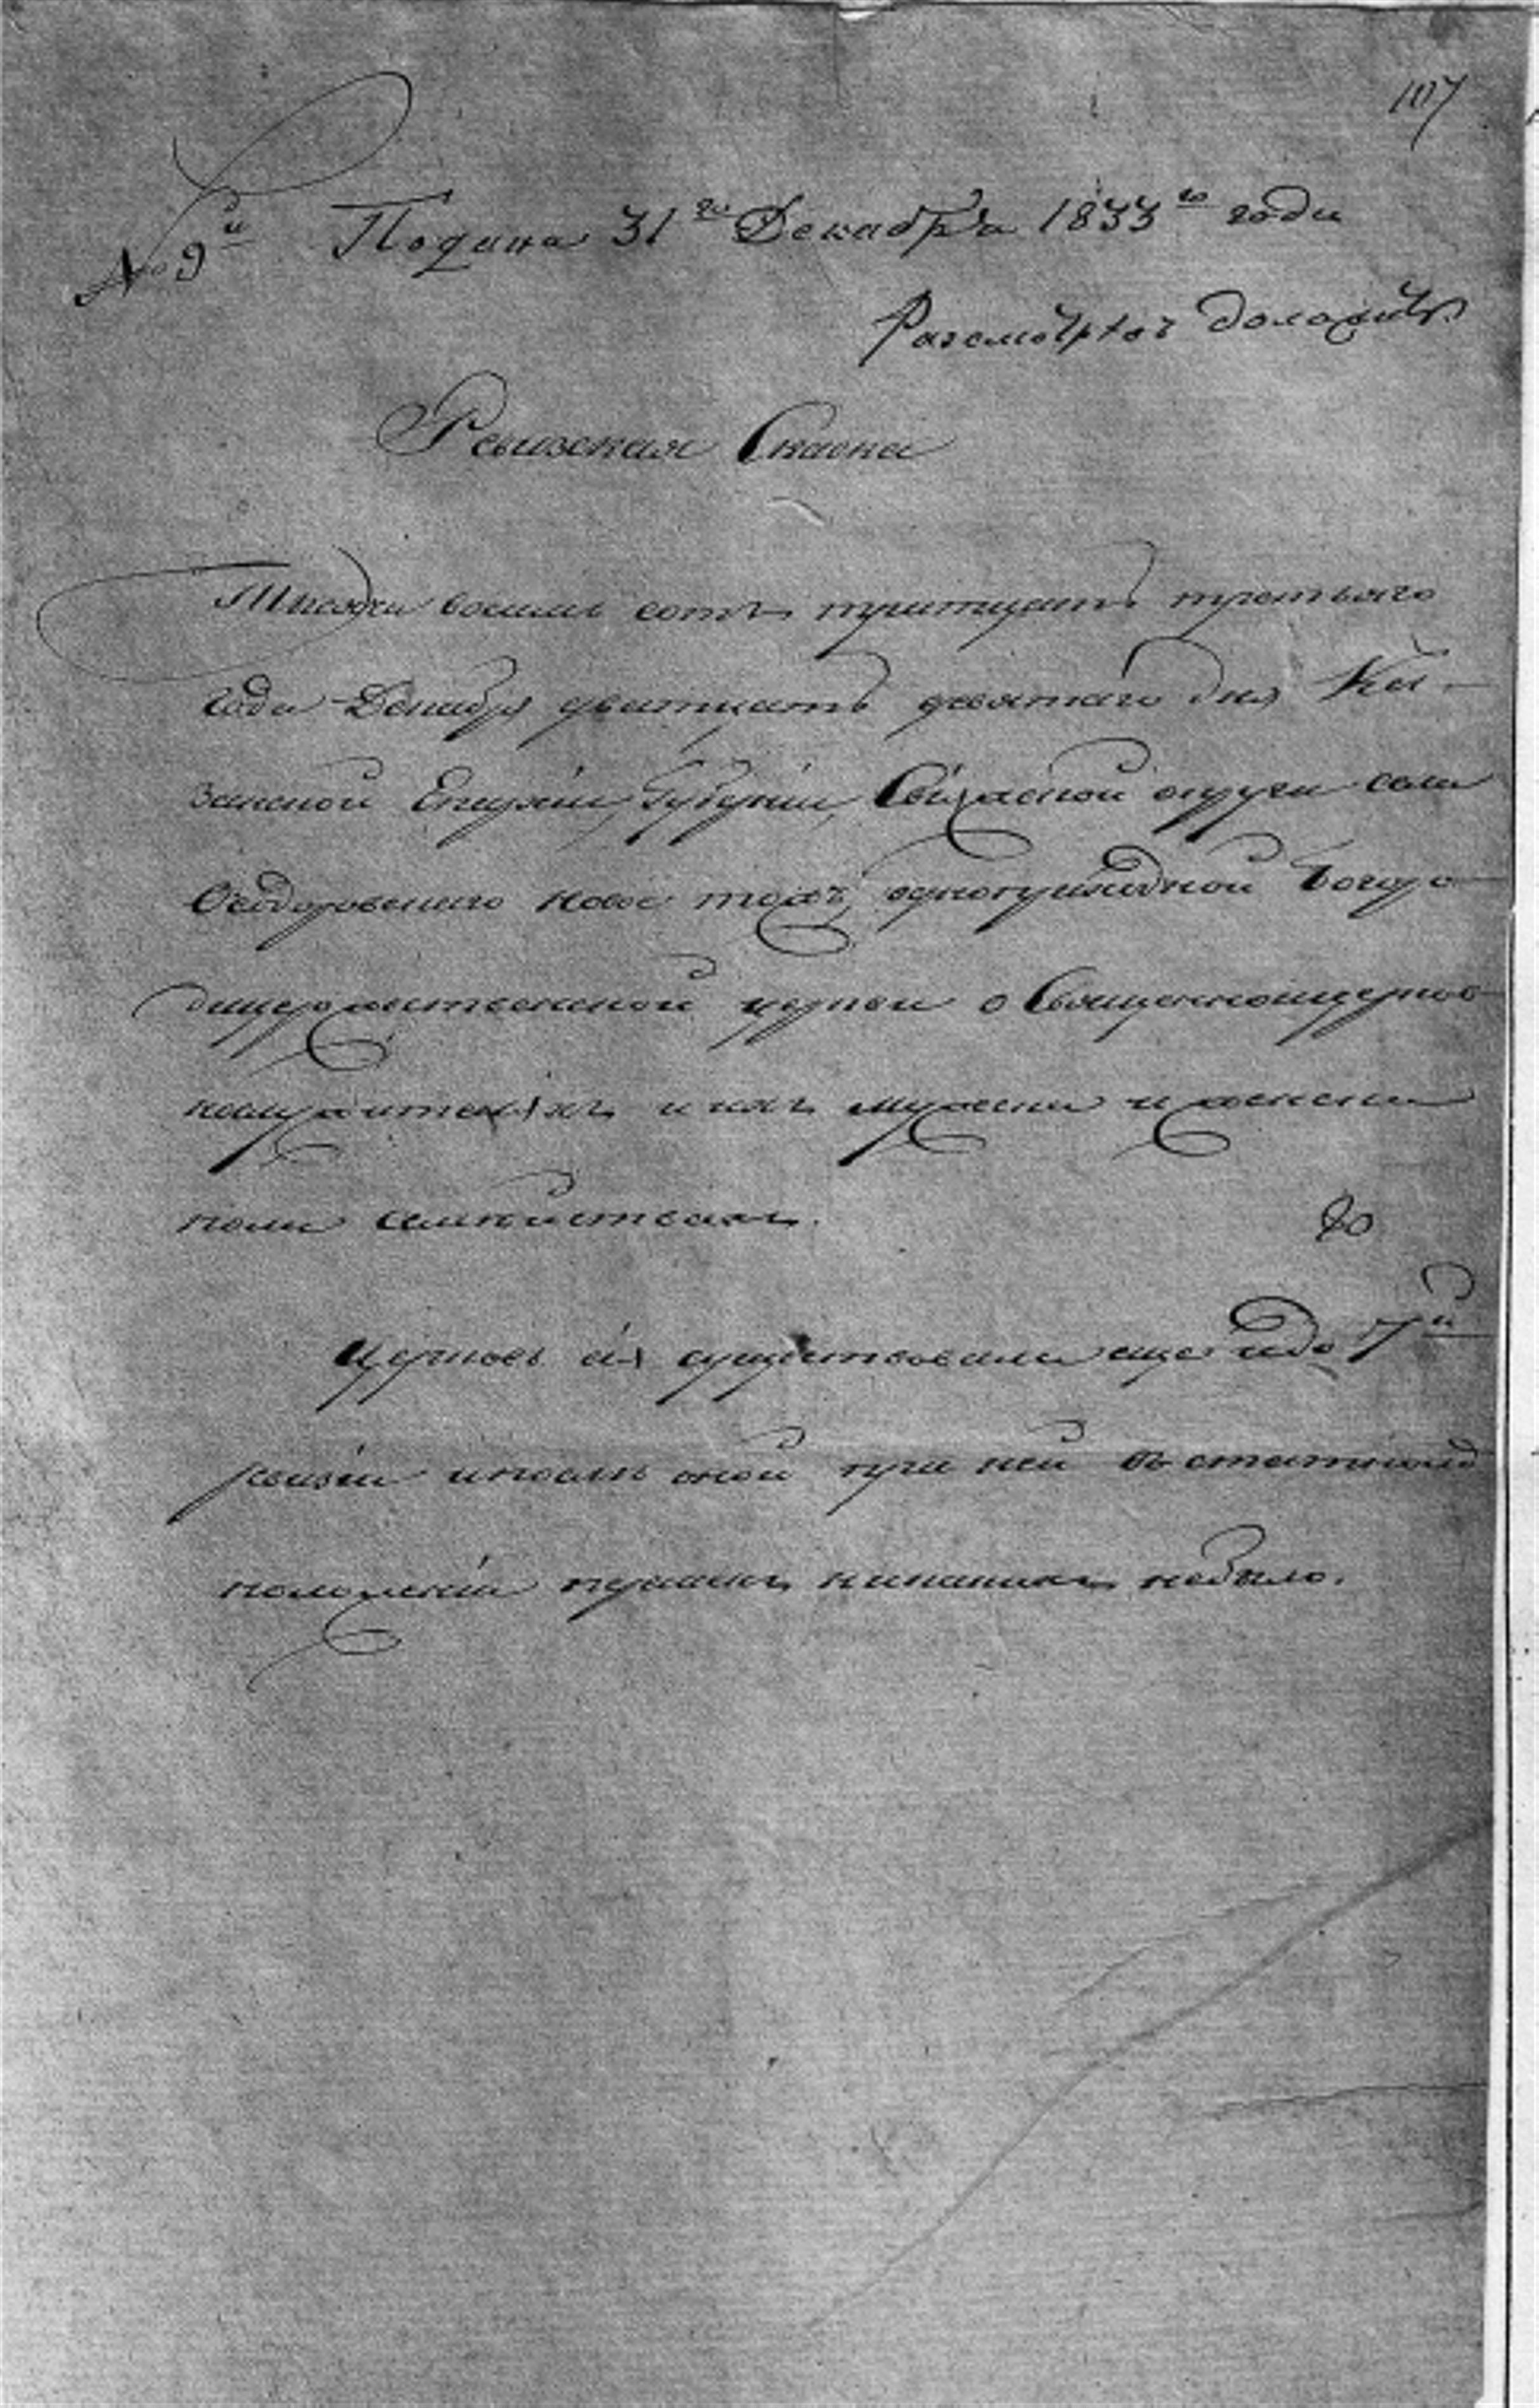 107
№ 9й Подана 31го Декабря 1833го года
Разсмотревъ доложить
Ревизская Скаска
Тысяча восемь сотъ тритцать третьяго
года Декабря дватцать девятаго дня Ка-
занской Епархіи, Губерніи, Свіяжской округи села
Феодоровскаго тожъ, одноприходной Богоро
дицерожественской церкви о Священноцерков
нослужителяхъ и ихъ мужеска и женска
пола семействахъ.
80
Церковь сія существовала еще и до 7й
ревизіи и посли оной при ней въ статномъ
положеніи перемѣнъ никакихъ небыло.